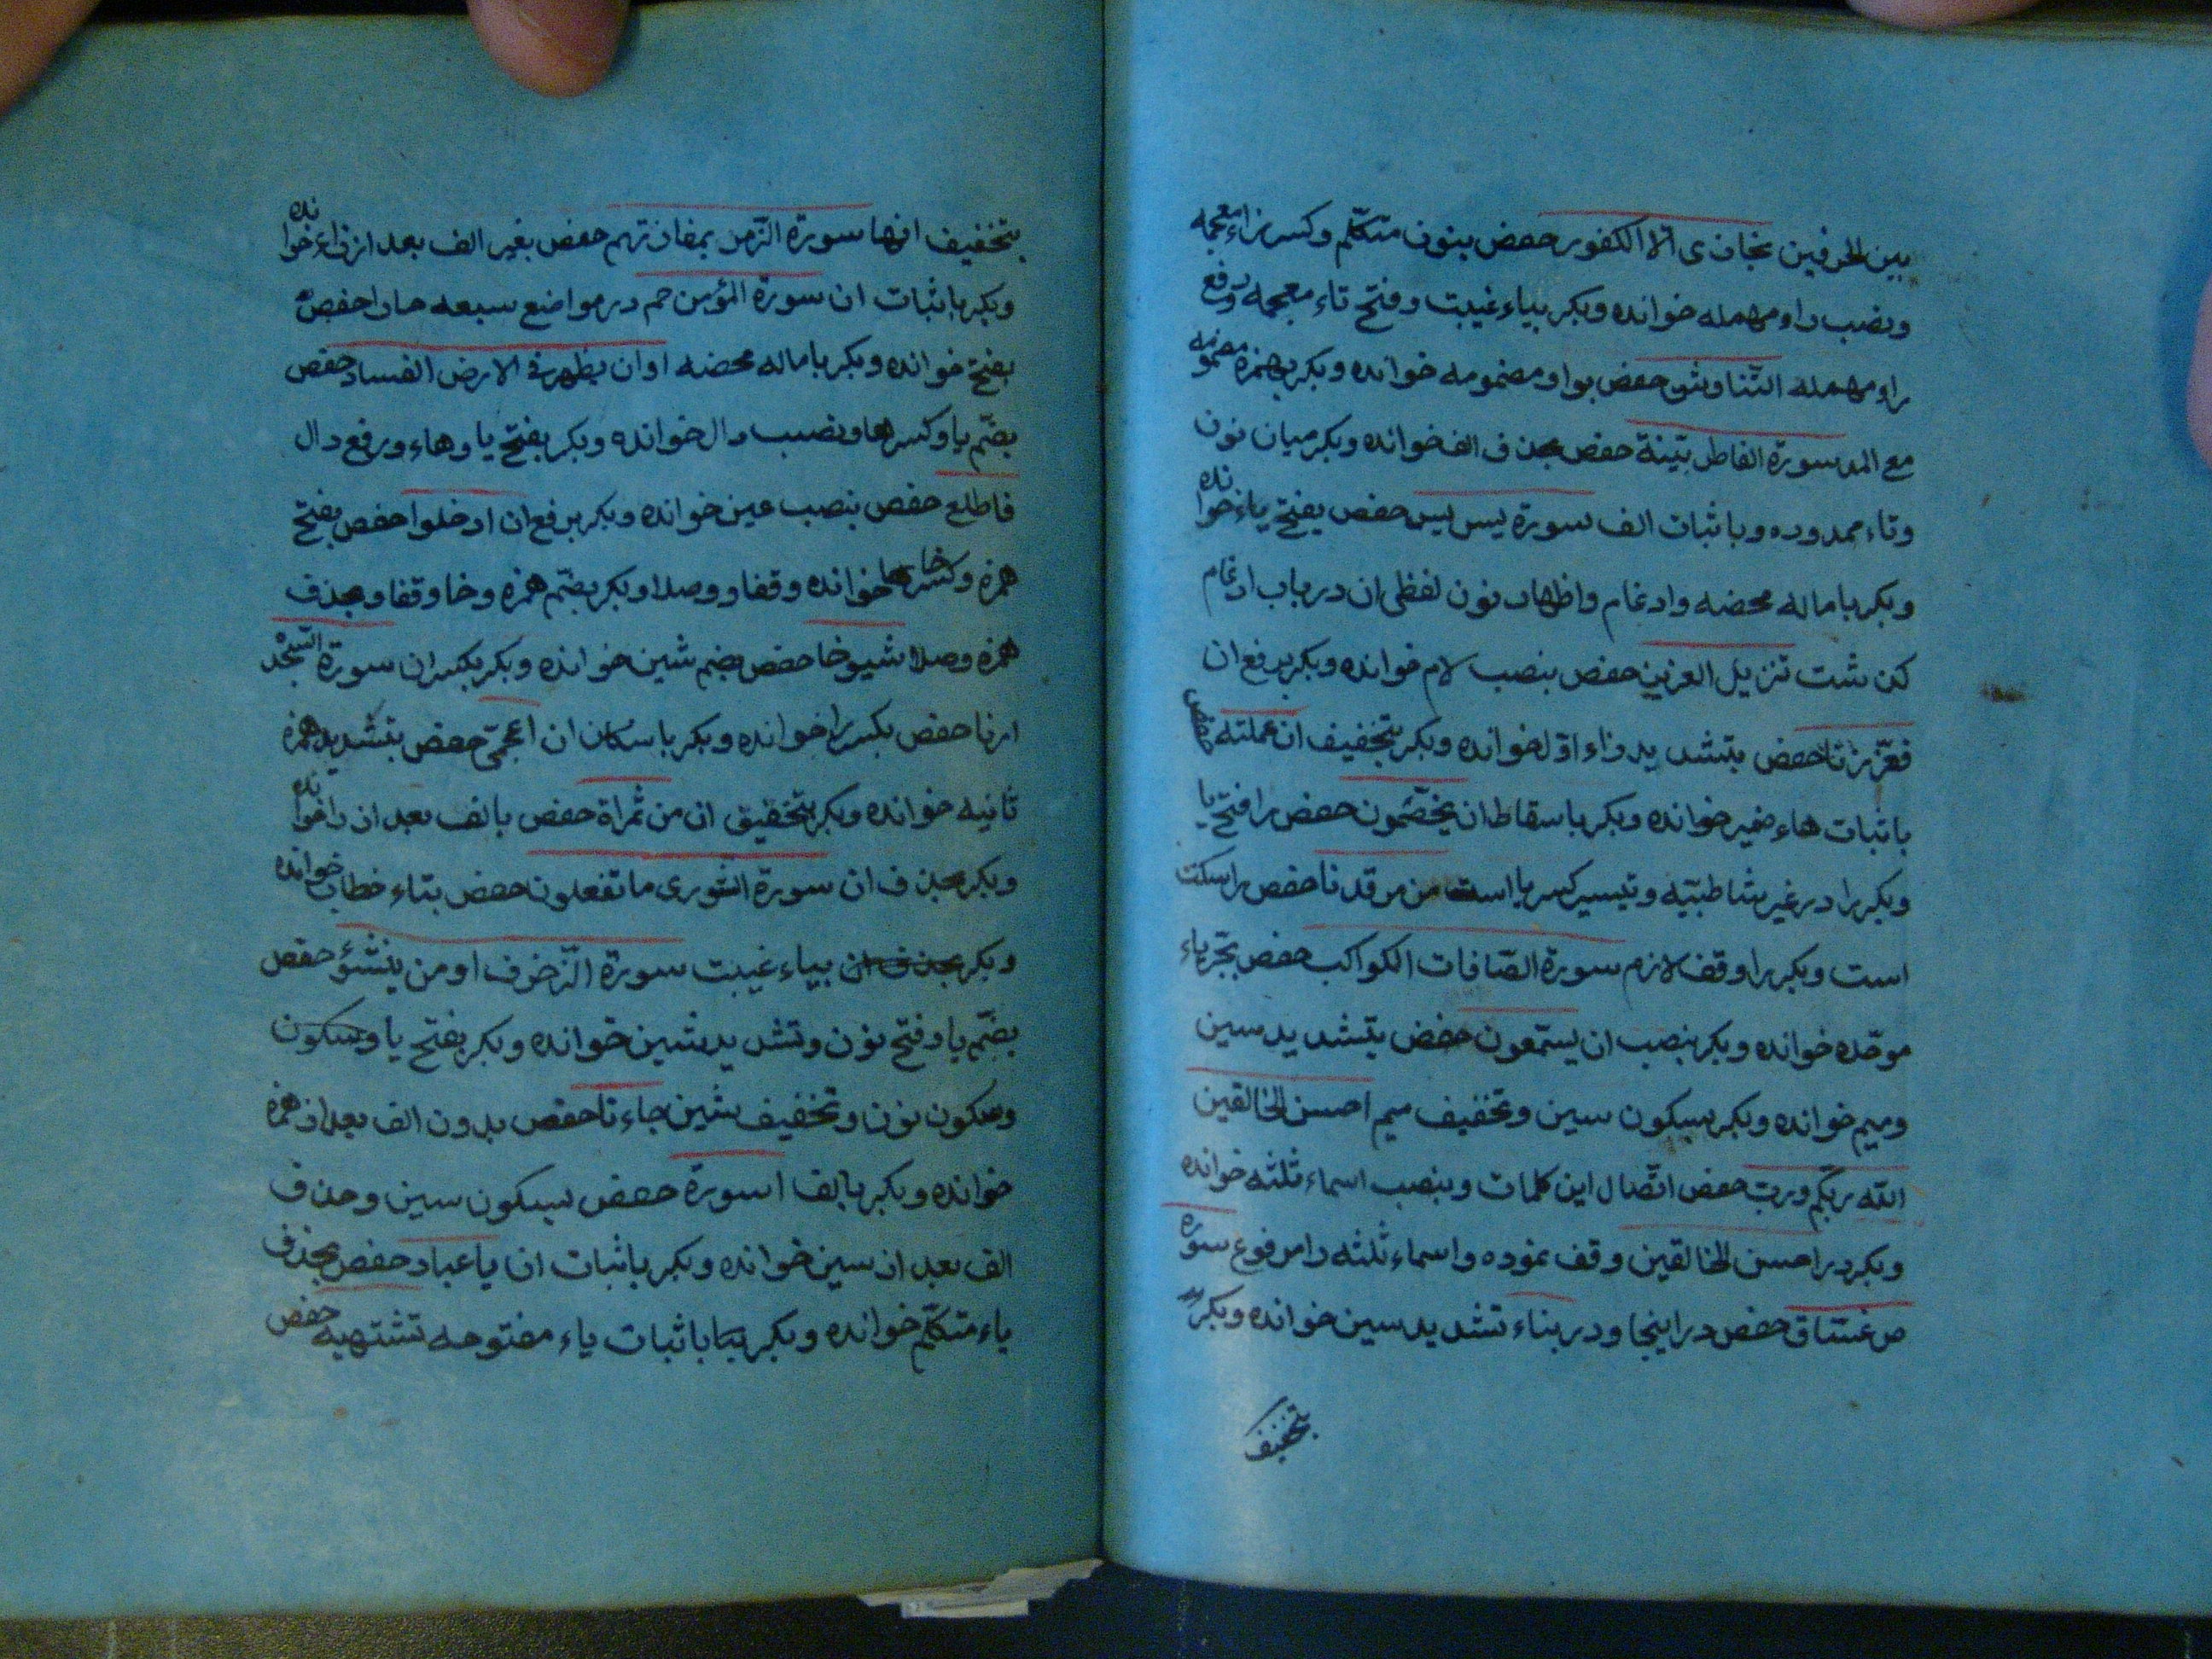 بین الحرفین نجازی الا الکفور حفص بنون متکلّم و کسر زاء معجمه
و نصب راء مهمله خوانده و بکر بیاء غیبت و فتح تاء معجمه و رفع
راء مهمله التّناوش حفص بواو مضمومه خوانده و بکر بهمزه مضمومه
مع المد سورة الفاطر بیّنة حفص بحذف الف خوانده و بکر میان نون
و تاء ممدوده و باثبات الف سورة یس یس حفص بفتح یاء خوانده
و بکر باماله محضه و ادغام و اظهار نون لفظی ان در باب ادغام
کذشت تنزیل العزیز حفص بنصب لام خوانده و بکر برفع ان
فعزّزنا حفص بتشدید زاء اوّل خوانده و بکر بتخفیف ان عملته حفص
باثبات هاء ضمیر خوانده و بکر باسقاط ان یخصّمون حفص را فتح یا
و بکر را در غیر شاطبیّه و تیسیر کسر یا است من مرقدنا حفص را سکت
است و بکر را وقف لازم سورة الصّافات الکواکب حفص بجّر باء
موحّده خوانده و بکر بنصب ان یسّمعون حفص بتشدید سین
و میم خوانده و بکر بسکون سین و تخفیف میم احسن الخالقین
الله ربّکم و ربّ حفص اتّصال این کلمات و بنصب اسماء ثلثه خوانده
و بکر در احسن الخالقین وقف نموده و اسماء ثلثه را مرفوع سورة
ص غسّاق حفص در اینجا و در بناء تشدید سین خوانده و بکر
بتخفیف
بتخفیف انها سورة الزّمر بمفازتهم حفص بغیر الف بعد از زاء خوانده
و بکر باثبات ان سورة المؤمن حم در مواضع سبعه حا را حفص
بفتح خوانده و بکر باماله محضه او ان یظهر فی الارض الفساد حفص
بضّم یا و کسر ها و نصب دال خوانده و بکر بفتح یا و هاء و رفع دال
فاطلع حفص بنصب عین خوانده و بکر برفع ان ادخلوا حفص بفتح
همزه و کسر خا خوانده وقفا و وصلا و بکر بضّم همزه و خا وقفا و بحذف
همزه وصلا شیوخا حفص بضم شین خوانده و بکر بکسر ان سورة السّجده
ارنا حفص بکسر را خوانده و بکر باسکان ان اعجمّی حفص بتشدید همزه
ثانیه خوانده و بکر بتخقیق ان من ثمراة حفص بالف بعد ان را خوانده
و بکر بحذف ان سورة الشوری ما تفعلون حفص بتاء خطاب خوانده
و بکر بحذف ان بیاء غیبت سورة الزّخرف او من ینشؤ حفص
بضّم یا و فتح نون و تشدید شین خوانده و بکر بفتح یا و سکون
و سکون نون و تخفیف شین جاءنا حفص بدون الف بعد از همزه
خوانده و بکر بالف اسورة حفص بسکون سین و حذف
الف بعد ان سین خوانده و بکر باثبات ان یا عباد حفص بحذف
یاء متکلّم خوانده و بکر باثبات یاء مفتوحه تشتهیه حفص